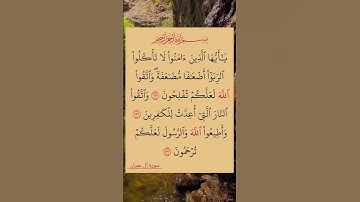 بِسْمِ ٱللَّهِ ٱلرَّحْمَٰنِ ٱلرَّحِيمِ
يَٰٓأَيُّهَا ٱلَّذِينَ ءَامَنُوا۟ لَا تَأْكُلُوا۟
ٱلرِّبَوٰٓا۟ أَضْعَٰفًا مُّضَٰعَفَةً ۖ وَٱتَّقُوا۟
ٱللَّهَ لَعَلَّكُمْ تُفْلِحُونَ ١٣٠ وَٱتَّقُوا۟
ٱلنَّارَ ٱلَّتِىٓ أُعِدَّتْ لِلْكَٰفِرِينَ ١٣١
وَأَطِيعُوا۟ ٱللَّهَ وَٱلرَّسُولَ لَعَلَّكُمْ
تُرْحَمُونَ ١٣٢
سورة آل عمران